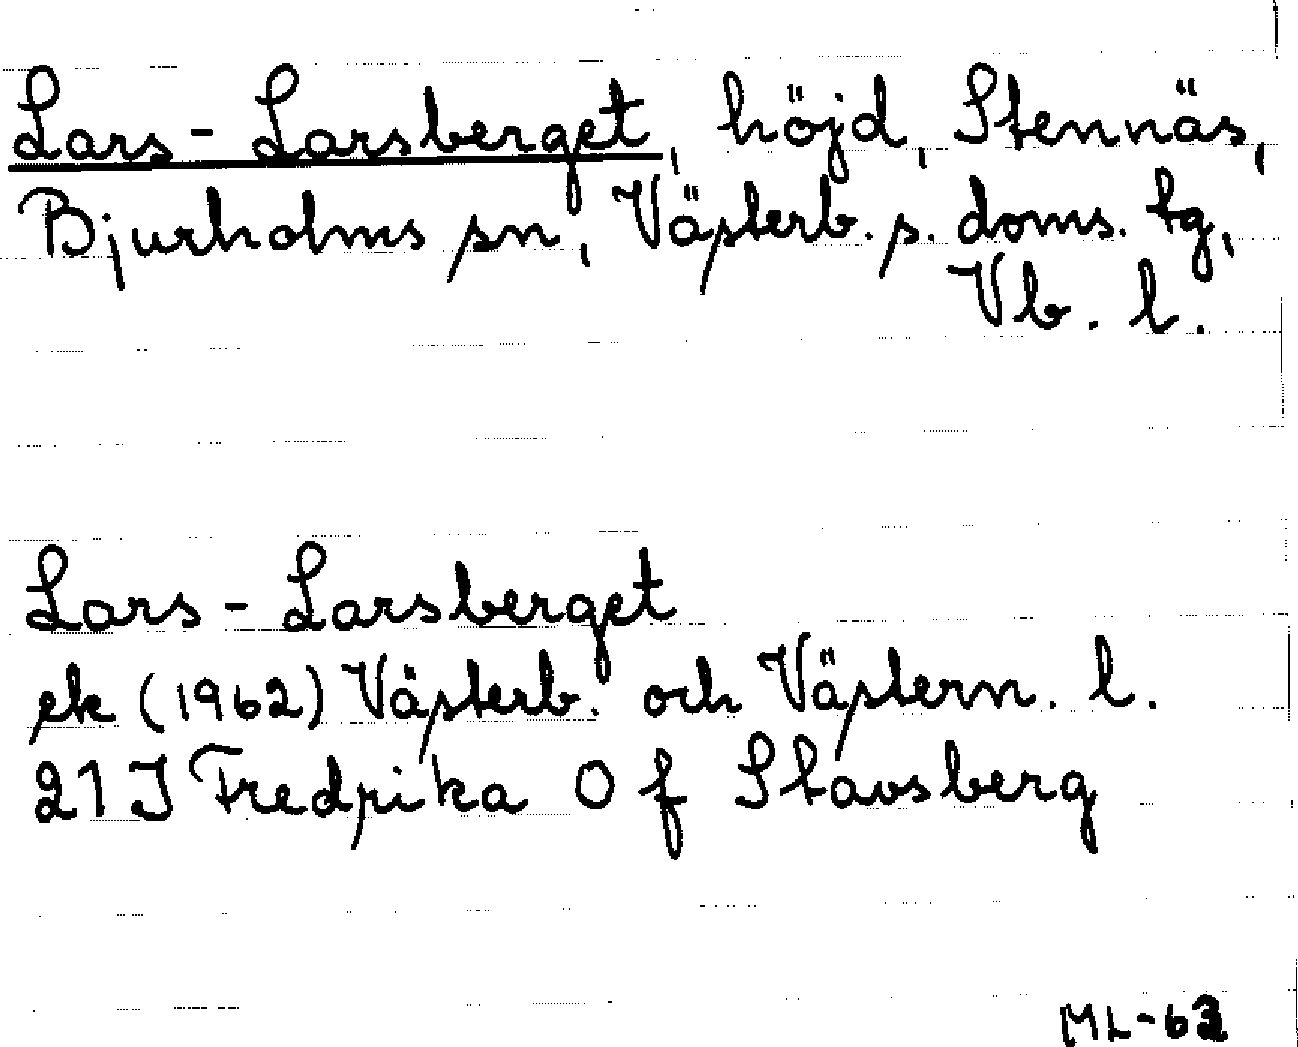 Lars-Larsberget, höjd, Stennäs,
Bjurholms sn, Västerb. s. doms. tg,
Vb. l.
Lars-Larsberget
ek (1962) Västerb. och Västern. l.
21 J Fredrika 0 f Stavsberg
ML-63